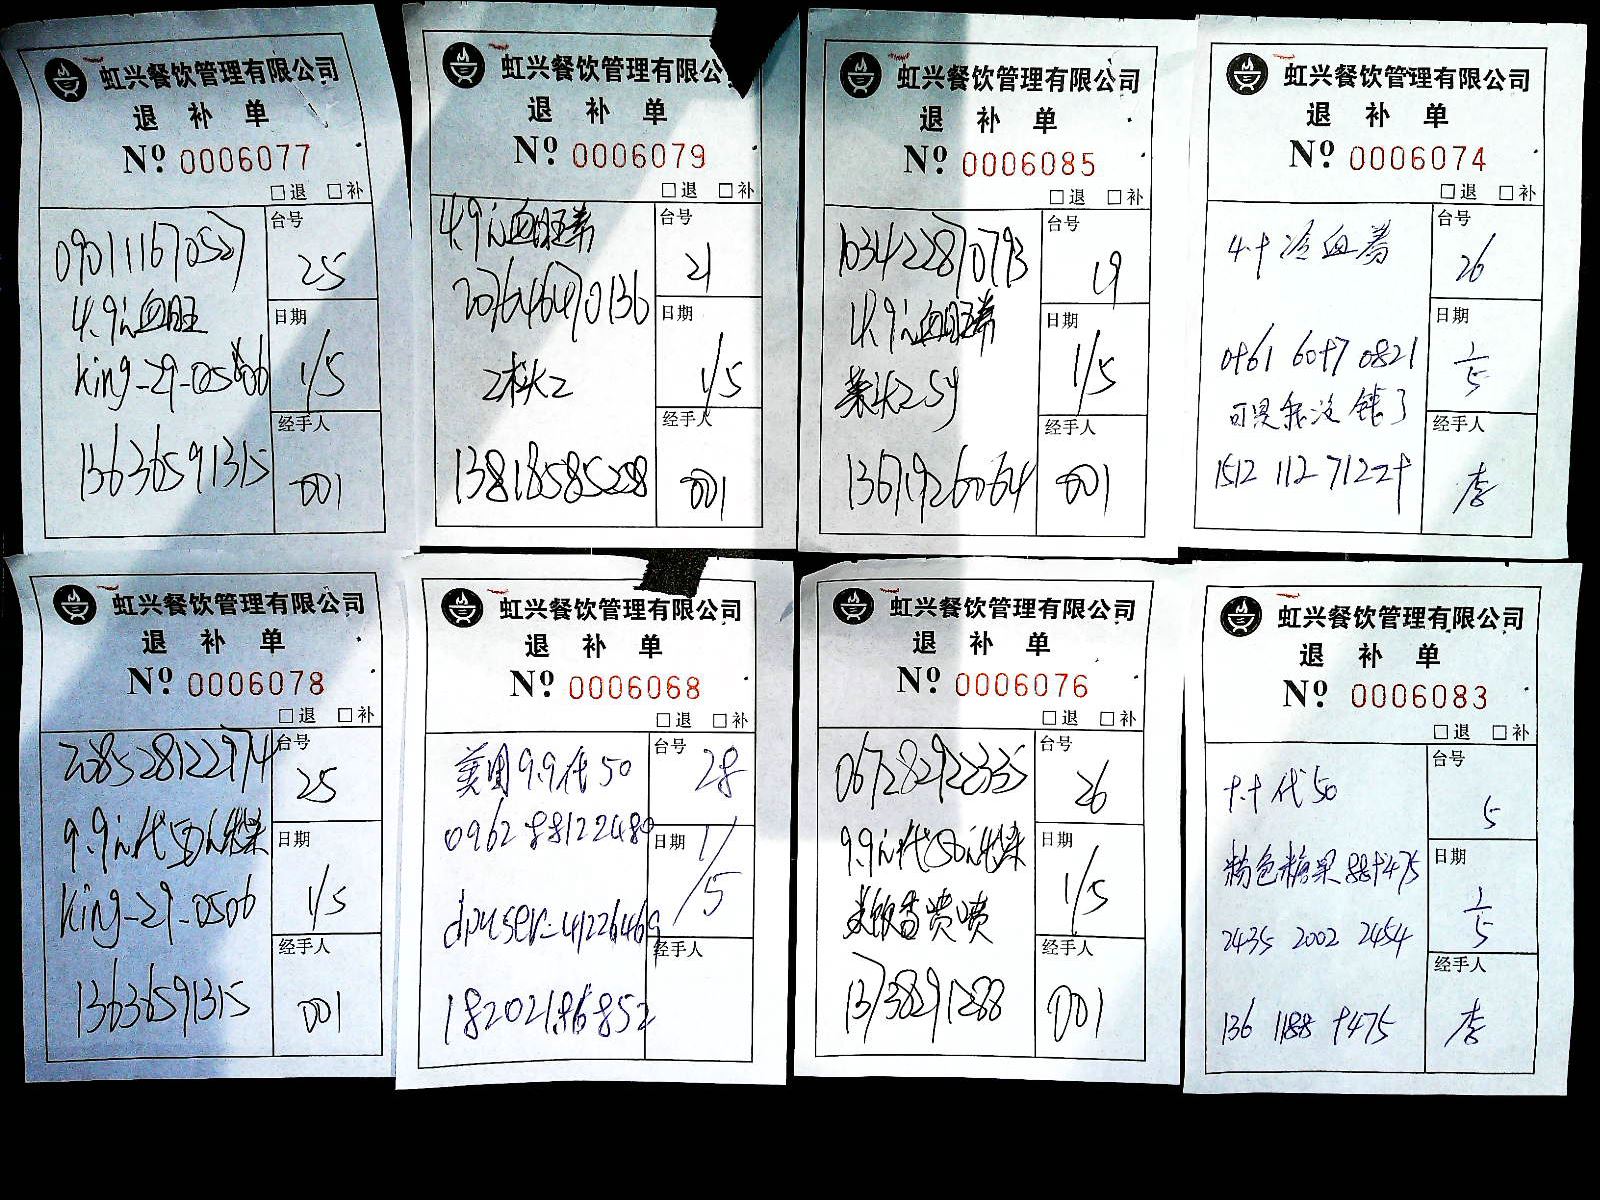 虹兴餐饮管理有限公司
退 补 单
Nº 0006077
□退 □补
090111670527
4.9元血旺
king-29-0506
13636591315
台号
25
日期
1/5
经手人
001
虹兴餐饮管理有限公
退 补 单
Nº 0006079
□退 □补
4.9元血旺券
207646470136
13818585258
台号
21
日期
1/5
经手人
001
虹兴餐饮管理有限公司
退 补 单
Nº 0006085
□退 □补
103422870793
4.9元血旺券
13671926064
台号
19
日期
1/5
经手人
001
虹兴餐饮管理有限公司
退 补 单
Nº 0006074
□退 □补
台号
26
日期
1/5
经手人
李
虹兴餐饮管理有限公司
退 补 单
Nº 0006078
□退 □补
208528122974
9.9元代50元
king-29-0506
13636591315
台号
25
日期
1/5
经手人
001
虹兴餐饮管理有限公司
退 补 单
Nº 0006068
□退 □补
美团9.9代50
0962 88122480
dpuser-
台号
28
日期
1/5
经手人
虹兴餐饮管理有限公司
退 补 单
Nº 0006076
□退 □补
067282922335
9.9元代50元
米饭香喷喷
13738291288
台号
26
日期
1/5
经手人
001
虹兴餐饮管理有限公司
退 补 单
Nº 0006083
□退 □补
代50
粉色糖果
2435 2002 2454
台号
5
日期
1/5
经手人
李